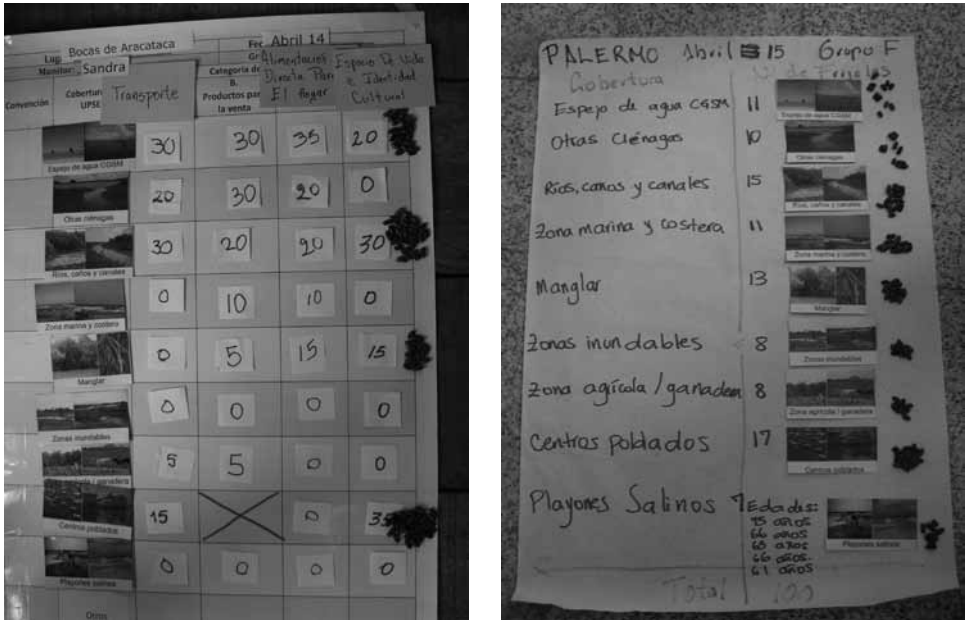 Bocas de Aracataca
Abril 14
Monitor: Sandra
Convención
Cobertura
UPSE
Transporte
Categoría de
B.
Productos para
la venta
Alimentación
Directa Para
El Hogar
Espacio De Vida
e Identidad
Cultural
30 30 35 20
Espejo de agua CGSM
20 30 20 0
Otras ciénagas
30 20 20 30
Ríos, caños y canales
0 10 10 0
Zona marina y costera
0 5 15 15
Manglar
0 0 0 0
Zonas inundables
5 5 0 0
Zona agrícola / ganadera
15 0 35
Centros poblados
0 0 0 0
Playones salinos
Otros
PALERMO Abril 15 Grupo F
Cobertura Nº de Frijoles
Espejo de agua CGSM 11
Espejo de agua CGSM
Otras Ciénagas 10
Otras ciénagas
Ríos, caños y canales 15
Ríos, caños y canales
Zona marina y costera 11
Zona marina y costera
Manglar 13
Manglar
Zonas inundables 8
Zonas inundables
Zona agrícola / ganadera 8
Zona agrícola / ganadera
Centros poblados 17
Centros poblados
Playones Salinos 7
Playones salinos
Edades:
75 años
66 años
65 años
66 años
61 años
Total 100